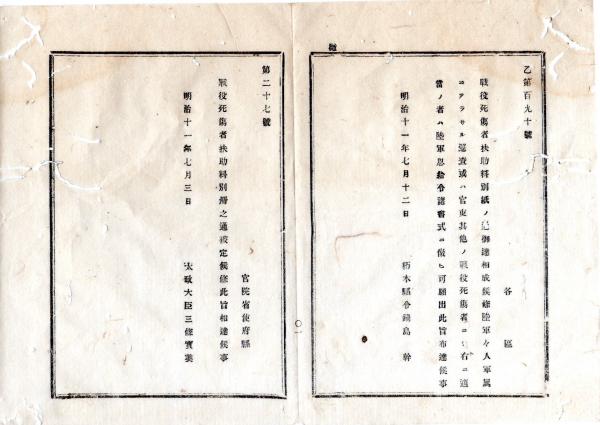 乙第百九十號
各區
戰役死傷者扶助料別紙ノ通御達相成候條陸軍々人軍属
ニアラサル巡査或ハ官吏其他ノ戰役死傷者ニシテ右ニ適
當ノ者ハ陸軍恩給令諸書式ニ倣ヒ可願出此旨布達候事
明治十一年七月十二日
栃木縣令鍋島幹
第二十七號
官院省使府縣
戰役死傷者扶助料別冊之通被定候條此旨相達候事
明治十一年七月三日
太政大臣三條實美